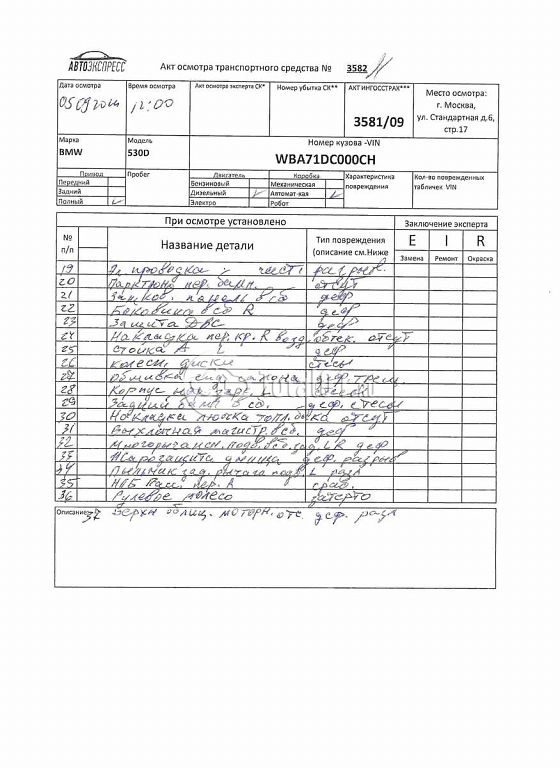 АВТОЭКСПРЕСС
Акт осмотра транспортного средства № 3582
Дата осмотра
Время осмотра 12:00
Акт осмотра эксперта СК*
Номер убытка СК**
АКТ ИНГОССТРАХ***
3581/09
Место осмотра:
г. Москва,
ул. Стандартная д.6,
стр.17
Марка
BMW
Модель
530D
Номер кузова -VIN
WBA71DC000CH
Привод
Передний
Задний
Полный
Пробег
Двигатель
Бензиновый
Дизельный
Электро
Коробка
Механическая
Автомат-кая
Робот
Характеристика
повреждения
Кол-во поврежденных
табличек VIN
При осмотре установлено
Заключение эксперта
№
п/п
Название детали
Тип повреждения
(описание см.Ниже
E I R
Замена Ремонт Окраска
19 Эл. проводка част. разрыв.
20 Парктроник пер. бамп. отсут
21 Зад. пов. панель в сб деф
22 Боковина в сб R деф
23 Защита ДВС деф
24 Накладка пер. кр. R возд. обтек. отсут
25 стойка A L деф
26 колесн. диски стесы
27 Обшивка салона деф. трещ.
28 Корпус
29 Задний бамп. в сб. деф. стесы
30 Накладка лючка топл. бака отсут
31 Выхлопная магистр. в сб. деф
32 Многорычажн. подв. в сб. зад. LR деф
33 Жарозащита днища деф. разрыв
34 Пыльник зад. рычага подв. L разл
35 НПБ Пасс. пер. R сраб.
36 Рулевое колесо затерто
Описание: 37 Верхн облиц. моторн. отс. деф. разл